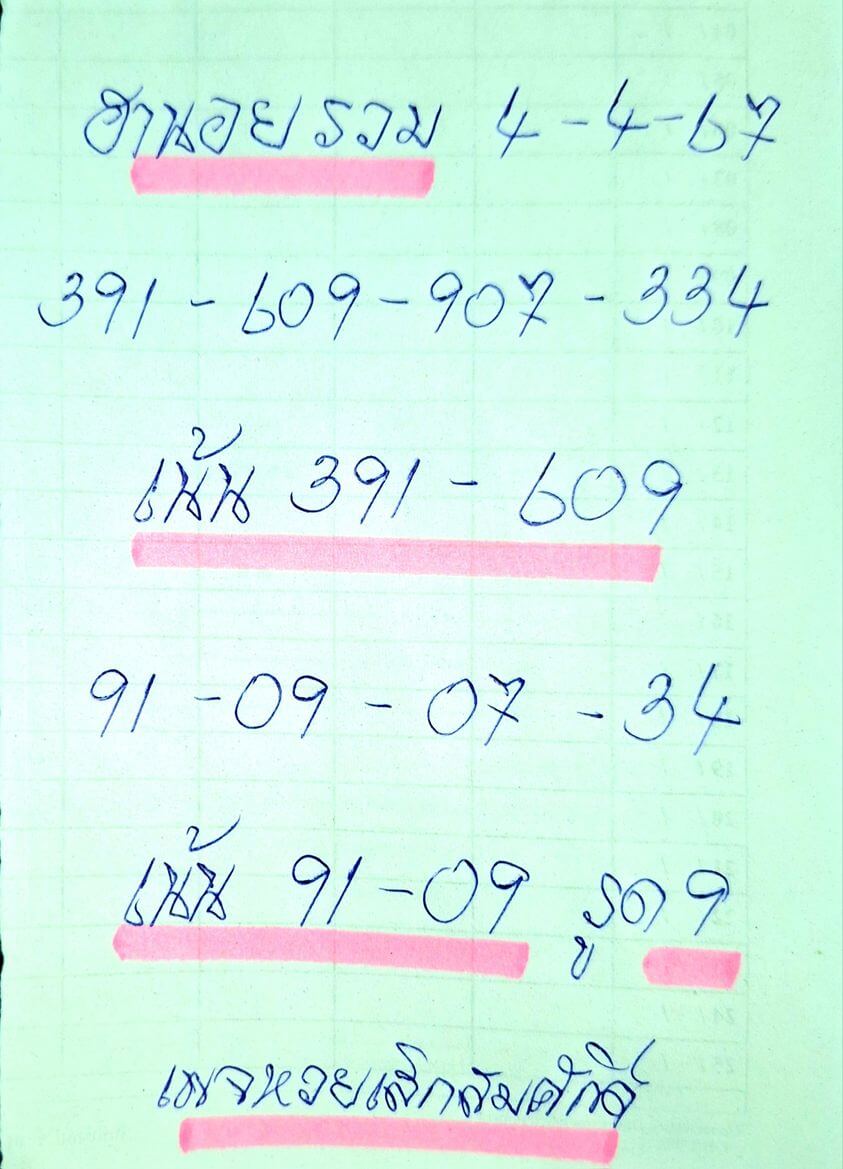 ฮานอย รวม 4-4-67
391-609-907-334
เน้น 391-609
91-09-07-34
เน้น 91-09 รูด 9
เพจหวยเสกสมศักดิ์